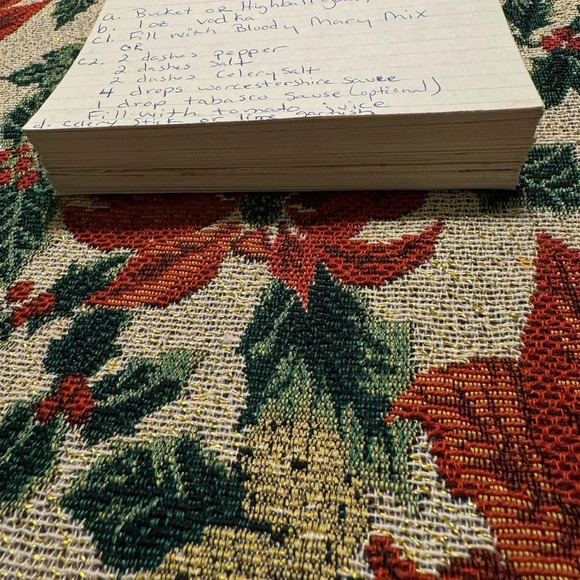 a. Bucket or Highball
b. 1oz vodka
c1. Fill with Bloody Mary Mix
OR
c2. 2 dashes pepper
2 dashes salt
2 dashes Celery salt
4 drops worcestershire sause
1 drop tabasco sause (optional)
Fill with tomato juice
d. celery stick or lime garnish